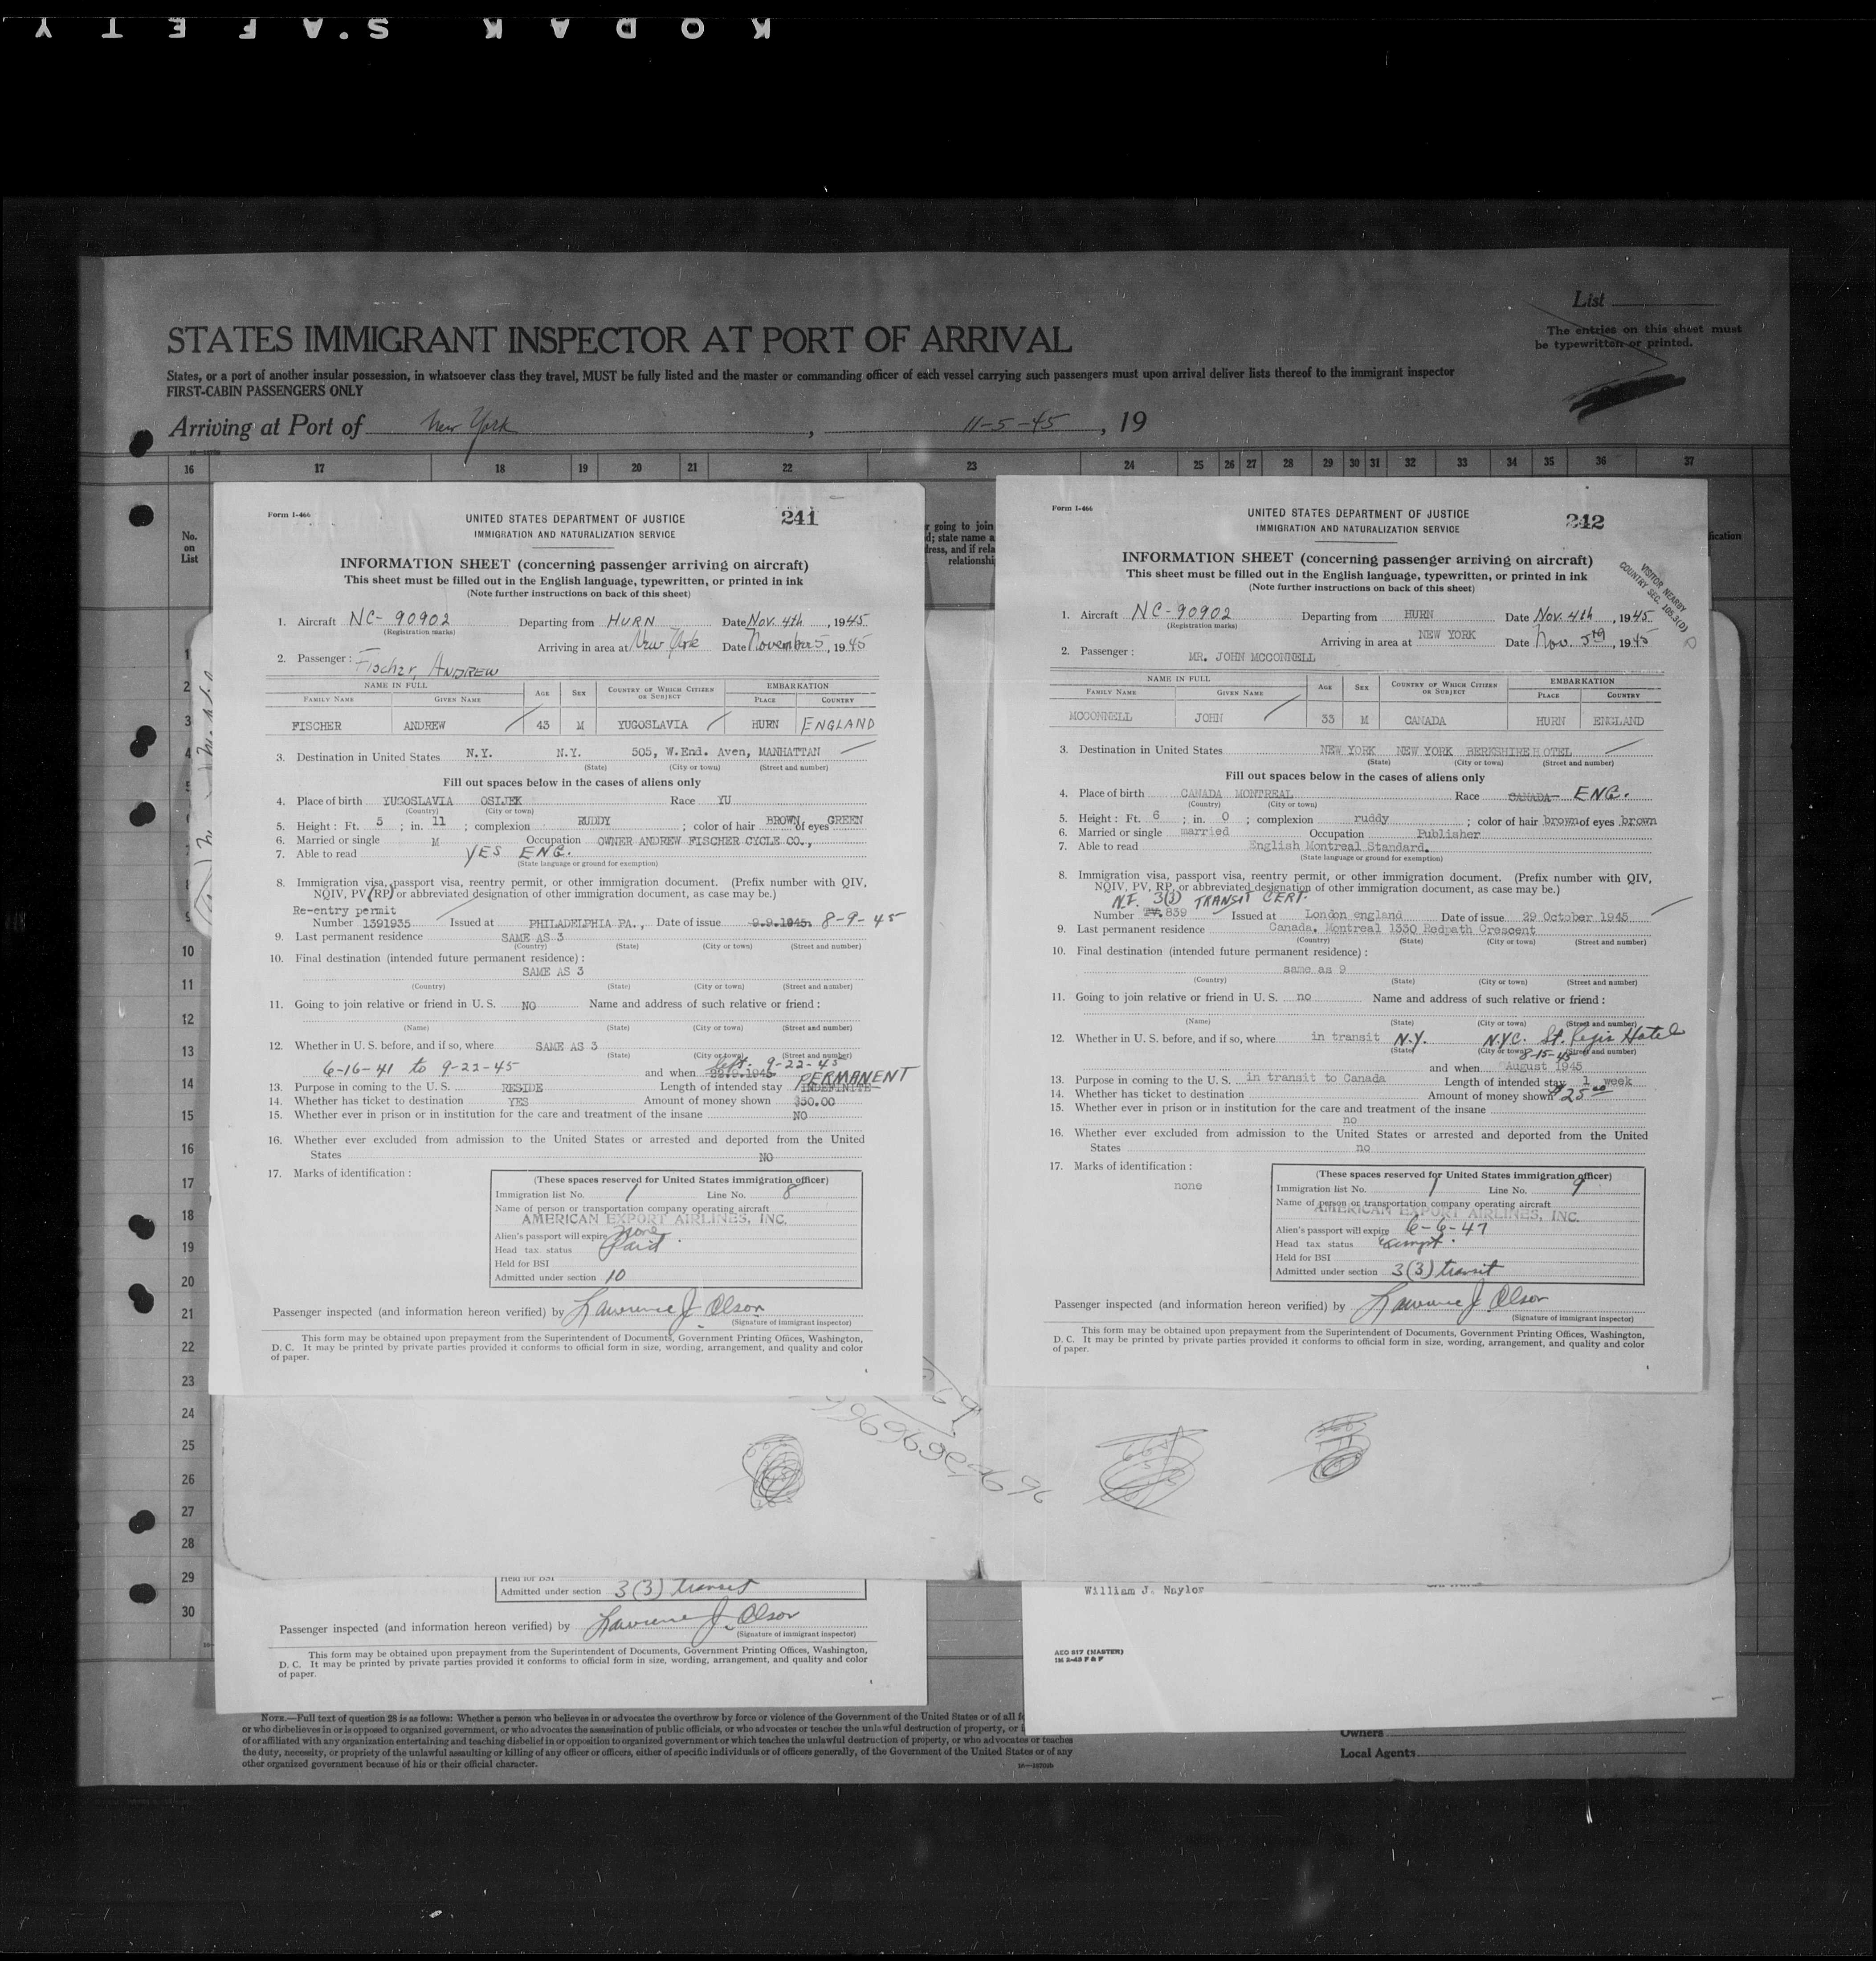 KODAK SAFETY
List
The entries on this sheet must
be typewritten or printed.
STATES IMMIGRANT INSPECTOR AT PORT OF ARRIVAL
States, or a port of another insular possession, in whatsoever class they travel, MUST be fully listed and the master or commanding officer of each vessel carrying such passengers must upon arrival deliver lists thereof to the immigrant inspector
FIRST-CABIN PASSENGERS ONLY
Arriving at Port of New York, 11-5-45, 19
16 17 18 19 20 21 22 23 24 25 26 27 28 29 30 31 32 33 34 35 36 37
No.
on
List
r going to join
d; state name a
dress, and if rela
relationshi
Form I-466
UNITED STATES DEPARTMENT OF JUSTICE 241
IMMIGRATION AND NATURALIZATION SERVICE
INFORMATION SHEET (concerning passenger arriving on aircraft)
This sheet must be filled out in the English language, typewritten, or printed in ink
(Note further instructions on back of this sheet)
1. Aircraft NC-90902 Departing from HURN Date Nov. 4th, 1945
(Registration marks)
Arriving in area at New York Date November 5, 1945
2. Passenger: Fischer, ANDREW
NAME IN FULL AGE SEX COUNTRY OF WHICH CITIZEN OR SUBJECT EMBARKATION
FAMILY NAME GIVEN NAME PLACE COUNTRY
FISCHER ANDREW 43 M YUGOSLAVIA HURN ENGLAND
3. Destination in United States N.Y. N.Y. 505, W.End. Aven, MANHATTAN
(State) (City or town) (Street and number)
Fill out spaces below in the cases of aliens only
4. Place of birth YUGOSLAVIA OSIJEK Race YU
(Country) (City or town)
5. Height: Ft. 5; in. 11; complexion RUDDY; color of hair BROWN of eyes GREEN
6. Married or single M Occupation OWNER ANDREW FISCHER CYCLE CO.,
7. Able to read YES ENG.
(State language or ground for exemption)
8. Immigration visa, passport visa, reentry permit, or other immigration document. (Prefix number with QIV,
NQIV, PV, RP, or abbreviated designation of other immigration document, as case may be.)
Re-entry permit
Number 1391935 Issued at PHILADELPHIA PA., Date of issue 9.9.1945. 8-9-45
9. Last permanent residence SAME AS 3
(Country) (State) (City or town) (Street and number)
10. Final destination (intended future permanent residence):
SAME AS 3
(Country) (State) (City or town) (Street and number)
11. Going to join relative or friend in U. S. NO Name and address of such relative or friend:
(Name) (State) (City or town) (Street and number)
12. Whether in U. S. before, and if so, where SAME AS 3
(State) (City or town) (Street and number)
6-16-41 to 9-22-45 left. 9-22-45
and when 22.9.1945
13. Purpose in coming to the U. S. RESIDE Length of intended stay INDEFINITE PERMANENT
14. Whether has ticket to destination YES Amount of money shown $50.00
15. Whether ever in prison or in institution for the care and treatment of the insane NO
16. Whether ever excluded from admission to the United States or arrested and deported from the United
States NO
17. Marks of identification:
(These spaces reserved for United States immigration officer)
Immigration list No. 1 Line No. 8
Name of person or transportation company operating aircraft
AMERICAN EXPORT AIRLINES, INC.
Alien's passport will expire none
Head tax status Paid.
Held for BSI
Admitted under section 10
Passenger inspected (and information hereon verified) by Lawrence J. Olson
(Signature of immigrant inspector)
This form may be obtained upon prepayment from the Superintendent of Documents, Government Printing Offices, Washington,
D. C. It may be printed by private parties provided it conforms to official form in size, wording, arrangement, and quality and color
of paper.
Form I-466
UNITED STATES DEPARTMENT OF JUSTICE 242
IMMIGRATION AND NATURALIZATION SERVICE
INFORMATION SHEET (concerning passenger arriving on aircraft)
This sheet must be filled out in the English language, typewritten, or printed in ink
(Note further instructions on back of this sheet)
VISITOR NEARBY
COUNTRY SEC. 105.3(D)
1. Aircraft NC-90902 Departing from HURN Date Nov. 4th, 1945
(Registration marks)
Arriving in area at NEW YORK Date Nov. 5th, 1945
2. Passenger: MR. JOHN MCCONNELL
NAME IN FULL AGE SEX COUNTRY OF WHICH CITIZEN OR SUBJECT EMBARKATION
FAMILY NAME GIVEN NAME PLACE COUNTRY
MCCONNELL JOHN 33 M CANADA HURN ENGLAND
3. Destination in United States NEW YORK NEW YORK BERKSHIRE HOTEL
(State) (City or town) (Street and number)
Fill out spaces below in the cases of aliens only
4. Place of birth CANADA MONTREAL Race CANADA ENG.
(Country) (City or town)
5. Height: Ft. 6; in. 0; complexion ruddy; color of hair brown of eyes brown
6. Married or single married Occupation Publisher
7. Able to read English Montreal Standard.
(State language or ground for exemption)
8. Immigration visa, passport visa, reentry permit, or other immigration document. (Prefix number with QIV,
NQIV, PV, RP, or abbreviated designation of other immigration document, as case may be.)
N.I. 3(3) TRANSIT CERT.
Number 839 Issued at London england Date of issue 29 October 1945
9. Last permanent residence Canada. Montreal 1330 Redpath Crescent
(Country) (State) (City or town) (Street and number)
10. Final destination (intended future permanent residence):
same as 9
(Country) (State) (City or town) (Street and number)
11. Going to join relative or friend in U. S. no Name and address of such relative or friend:
(Name) (State) (City or town) (Street and number)
12. Whether in U. S. before, and if so, where in transit N.Y. NYC. St. Regis Hotel
(State) (City or town) (Street and number)
8-15-45
and when August 1945
13. Purpose in coming to the U. S. in transit to Canada Length of intended stay 1 week
14. Whether has ticket to destination Amount of money shown $25.00
15. Whether ever in prison or in institution for the care and treatment of the insane
no
16. Whether ever excluded from admission to the United States or arrested and deported from the United
States no
17. Marks of identification:
none
(These spaces reserved for United States immigration officer)
Immigration list No. 1 Line No. 9
Name of person or transportation company operating aircraft
AMERICAN EXPORT AIRLINES, INC.
Alien's passport will expire 6-6-47
Head tax status exempt.
Held for BSI
Admitted under section 3(3) transit
Passenger inspected (and information hereon verified) by Lawrence J Olson
(Signature of immigrant inspector)
This form may be obtained upon prepayment from the Superintendent of Documents, Government Printing Offices, Washington,
D. C. It may be printed by private parties provided it conforms to official form in size, wording, arrangement, and quality and color
of paper.
1
2
3
4
5
6
7
8
9
10
11
12
13
14
15
16
17
18
19
20
21
22
23
24
25
26
27
28
29
30
Held for BSI
Admitted under section 3(3) transit
Passenger inspected (and information hereon verified) by Lawrence J. Olson
(Signature of immigrant inspector)
This form may be obtained upon prepayment from the Superintendent of Documents, Government Printing Offices, Washington,
D. C. It may be printed by private parties provided it conforms to official form in size, wording, arrangement, and quality and color
of paper.
William J. Naylor
AEO 817 (MASTER)
NOTE.—Full text of question 28 is as follows: Whether a person who believes in or advocates the overthrow by force or violence of the Government of the United States or of all f
or who disbelieves in or is opposed to organized government, or who advocates the assassination of public officials, or who advocates or teaches the unlawful destruction of property, or i
of or affiliated with any organization entertaining and teaching disbelief in or opposition to organized government or which teaches the unlawful destruction of property, or who advocates or teaches
the duty, necessity, or propriety of the unlawful assaulting or killing of any officer or officers, either of specific individuals or of officers generally, of the Government of the United States or of any
other organized government because of his or their official character.
Owners
Local Agents